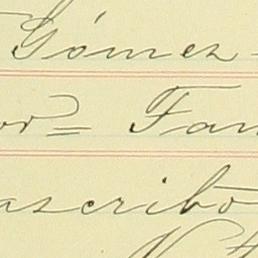 Gómez
or= Fam
ascribo